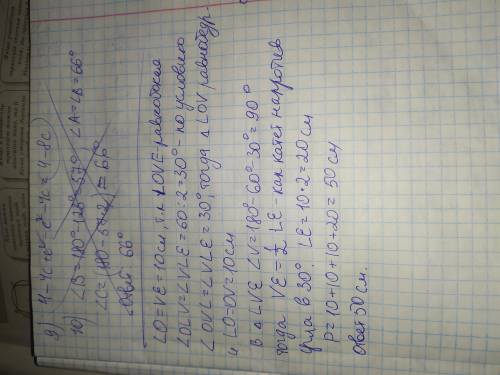 9) 4-4c+c²-c²-4c=4-8c)
10) ∠B=180°-128°-57° ∠A=∠B=66°
∠C=(180-57·2)=66°
Ответ 66°
LO=VE=10см, т.к LOVE-равнобокая
∠OLV=∠VLE=60:2=30°-по условию
∠OVL=∠VLE=30°, тогда △LOV равнобедр-
и LO=OV=10см
В △LVE ∠V=180°-60°-30°=90°
тогда VE=½ LE-как катет напротив
угла в 30°. LE=10·2=20см
P=10+10+10+20=50см
Ответ 50см.